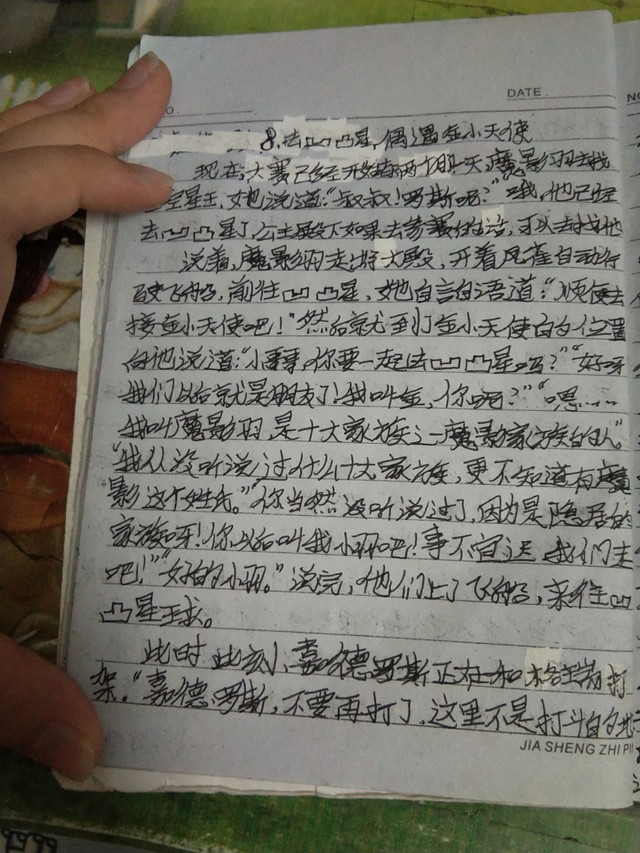 DATE.
O.
8.去凹凸星,偶遇金小天使
现在大赛已经开始有两个月,一天魔影羽去找
星王,她说道:“叔叔!罗斯呢?”“哦,他已经
去凹凸星了,公主殿下如果去参赛的话,可以去找他
说着,魔影羽走出大殿,开着风雀自动行
驶飞船,前往凹凸星,她自言自语道:“顺便去
接金小天使吧!”然后就到了金小天使白的位置
向他说道:“小哥哥,你要一起去凹凸星吗?”“好呀
我们以后就是朋友了!我叫金,你呢?”“嗯……
我叫魔影羽,是十大家族之一魔影家族的人”
“我从没听说过什么十大家族,更不知道有魔
影这个姓氏。”“你当然没听说过了,因为是隐居的
家族呀!你以后叫我小羽吧!事不宜迟,我们走
吧!”“好的小羽。”说完,他们上了飞船,亲往凹
凸星球。
此时此刻,嘉德罗斯正在和格瑞打
架。“嘉德罗斯,不要再打了,这里不是打斗白勺地
JIA SHENG ZHI PI